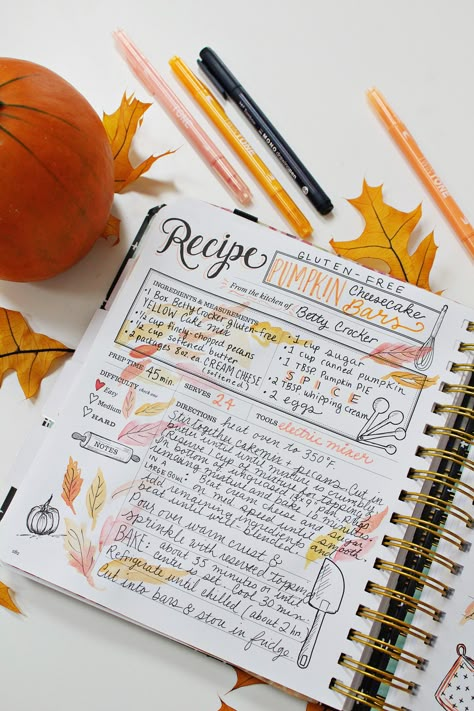 Recipe
GLUTEN-FREE
PUMPKIN Cheesecake
Bars
From the kitchen of Betty Crocker
INGREDIENTS & MEASUREMENTS
• 1 Box Betty Crocker gluten-free
YELLOW Cake mix
• ½ cup finely-chopped pecans
• ½ cup softened butter
• 2 packages 8oz ea CREAM CHEESE
(softened)
• 1 cup sugar
• 1 cup canned pumpkin
• 1 TBSP Pumpkin PIE
SPICE
• 2 TBSP whipping cream
• 2 eggs
PREP TIME 45 min.
SERVES 24
TOOLS electric mixer
DIFFICULTY check one
Easy
Medium
HARD
NOTES
DIRECTIONS heat oven to 350°F.
Stir together cakemix & pecans. Cut in
butter until mixture is crumbly.
Reserve 1 cup of mixture for topping.
IN A
LARGE BOWL: Beat cream cheese and sugar
on med speed until smooth.
Add remaining ingredients
beat until blended.
Pour over warm crust &
sprinkle with reserved topping.
BAKE: about 35 minutes or until
center is set. Cool 30 min.
Refrigerate until chilled (about 2 hr)
Cut into bars & store in fridge.
MONO